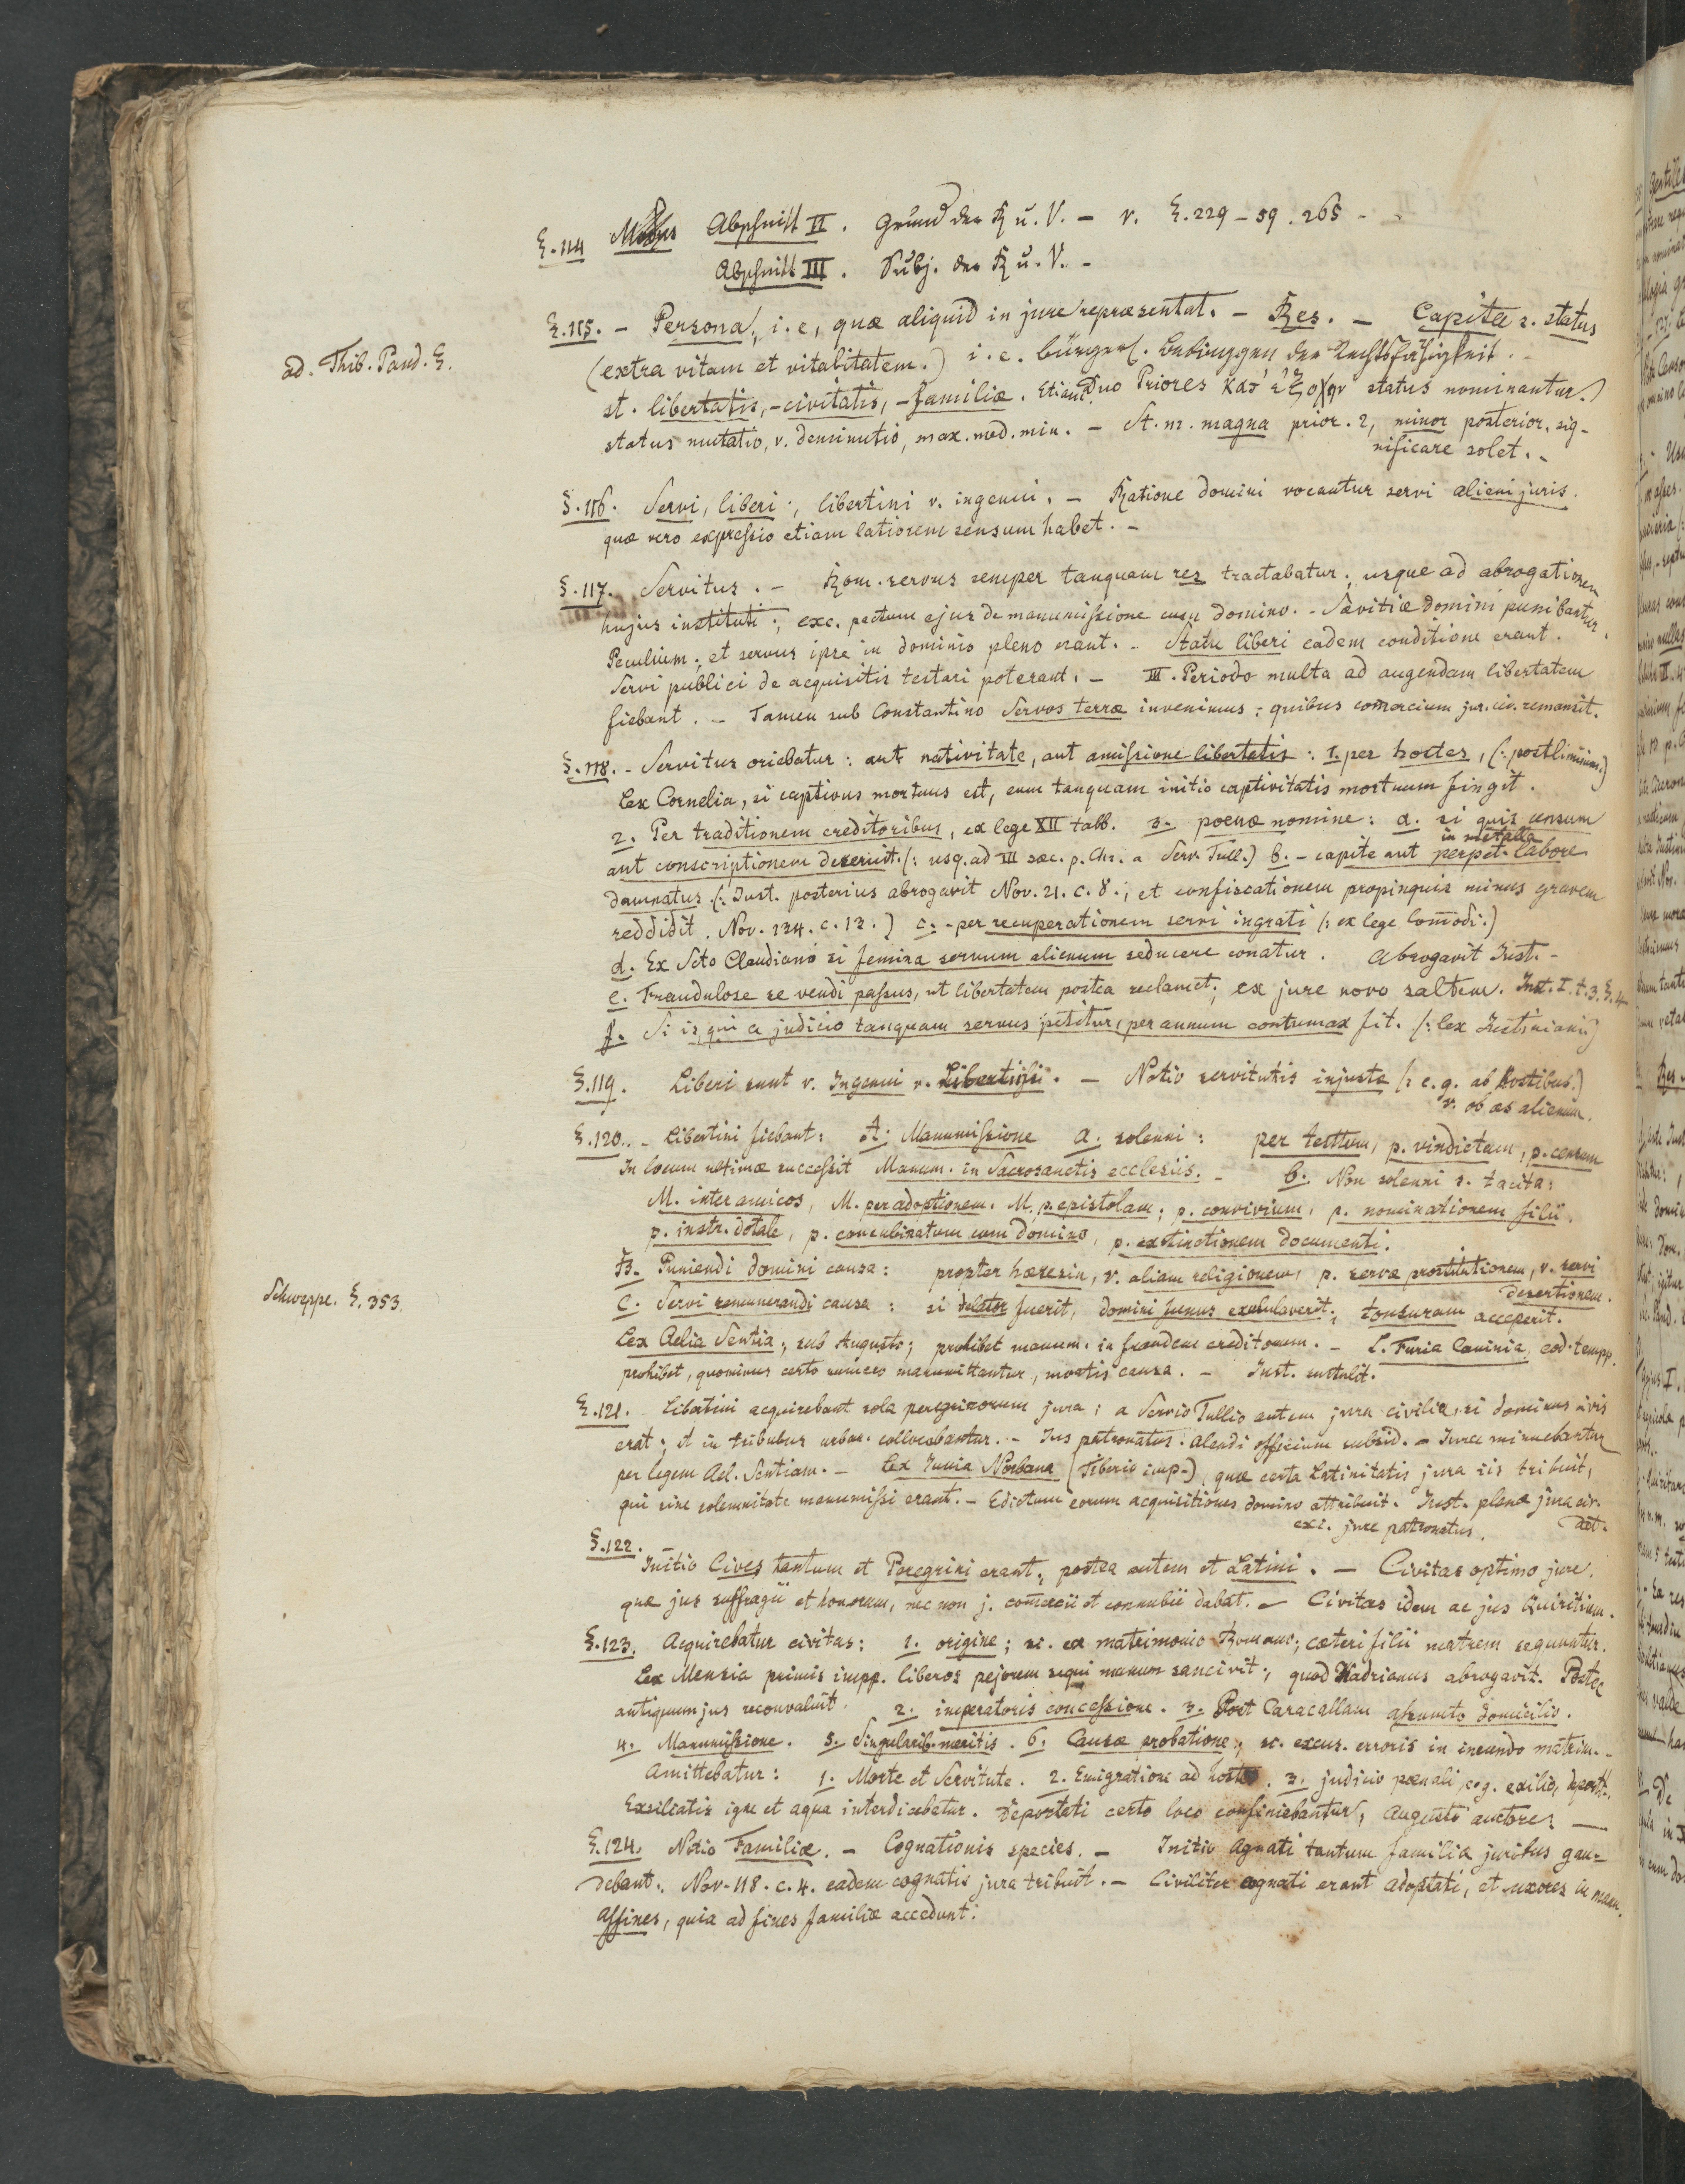 §.114 Abschnitt II. Grund der R u. V. - v. §.229-59.265 -
Abschnitt III. Subj. der R u. V. -
ad. Thib. Pand. §.
§.115. - Persona, i.e, quæ aliquid in jure repræsentat. - Res. - Capita s. status
(extra vitam et vitalitatem.) i.e. bürgerl. Bedingungen der Rechtsfähigkeit. -
st. libertatis, - civitatis, - familiæ. Etiam duo Priores κατ' ἐξοχην status nominantur.)
status mutatio, v. deminutio, max. med. min. - St. m. magna prior. 2, minor posterior. sig-
nificare solet. -
§.116. Servi, liberi; libertini v. ingenui. - Ratione domini vocantur servi alieni juris.
quæ vero expressio etiam latiorem sensum habet. -
§.117. Servitus. - Rom. servus semper tanquam res tractabatur; usque ad abrogationem
hujus instituti; exc. pactum ejus de manumissione cum domino. - Sævitiæ domini punibantur.
Peculium; et servus ipse in dominio pleno erant. - Statu liberi eadem conditione erant.
Servi publici de acquisitis testari poterant. - III. Periodo multa ad augendam libertatem
fiebant. - Tamen sub Constantino Servos terræ invenimus: quibus com̅ercium jur. civ. remansit.
§.118. - Servitus oriebatur: aut nativitate, aut amissione libertatis: 1. per hostes, (: postliminium.)
Lex Cornelia, si captivus mortuus est, eum tanquam initio captivitatis mortuum fingit.
2. Per traditionem creditoribus, ex lege XII tabb. 3. poenæ nomine: a. si quis censum
aut conscriptionem deseruit. (: usq. ad III sæc. p. Chr. a Serv. Tull.) b. - capite aut perpet. in metalla labore
damnatus. (: Just. posterius abrogavit Nov. 21. c. 8.; et confiscationem propinquis minus gravem
reddidit. Nov. 134. c. 13.) c. - per recuperationem servi ingrati (: ex lege Com̅odi:)
d. Ex Scto Claudiano si femina servum alienum seducere conatur. Abrogavit Just. -
e. Fraudulose se vendi passus, ut libertatem postea reclamet; ex jure novo saltem. Inst. I. t. 3. §. 4
f. Si is qui a judicio tanquam servus petitur, per annum contumax fit. (: lex Justiniani)
§.119. Liberi sunt v. Ingenui v. Libertini. - Notio servitutis injusta (: e. g. ab hostibus.)
v. ob æs alienum.
§.120. - Libertini fiebant: A: Manumissione a. solenni: per testtum, p. vindictam, p. censum
In locum ultimæ successit Manum. in Sacrosanctis ecclesiis. - b. Non solenni s. tacita:
M. inter amicos, M. per adoptionem. M. p. epistolam; p. convivium, p. nominationem filii.
p. instr. dotale, p. concubinatum cum domino, p. extinctionem documenti.
B. Puniendi domini causa: propter hæresin, v. aliam religionem, p. servæ prostitutionem, v. servi
desertionem.
Schweppe. §. 353.
C. Servi remunerandi causa: si delator fuerit, domini funus exubulaverit; tonsuram acceperit.
Lex Aelia Sentia; sub Augusto; prohibet manum. in fraudem creditorum. - L. Furia Caninia eod. temp.
prohibet, quominus certo numero manumittantur, mortis causa. - Just. sustulit.
§.121. Libertini acquirebant sola peregrinorum jura; a Servio Tullio autem jura civilia, si dominus civis
erat; et in tribubus urban. collocabantur. - Jus patronatus. Alendi officium subsid. - Jura minuebantur
per legem Ael. Sentiam. - Lex Junia Norbana (Tiberio imp.) quæ certa Latinitatis jura iis tribuit,
qui sine solemnitate manumissi erant. - Edictum eorum acquisitiones domino attribuit. Just. plena jura civ.
exc. jure patronatus. dat.
§.122.
Initio Cives tantum et Peregrini erant; postea autem et Latini. - Civitas optimo jure,
quæ jus suffragii et honorum, nec non j. com̅ercii et connubii dabat. - Civitas idem ac jus Quiritium.
§.123. Acquirebatur civitas: 1. origine; sc. ex matrimonio Romano; cæteri filii matrem sequuntur.
Lex Mensia primis impp. liberos pejorem sequi manum sancivit; quod Hadrianus abrogavit. Postea
antiquum jus reconvaluit. 2. imperatoris concessione. 3. Post Caracallam assumto domicilio.
4. Manumissione. 5. Singularib. meritis. 6. Causæ probatione; sc. excus. erroris in ineundo matrim. -
Amittebatur: 1. Morte et Servitute. 2. Emigratione ad hostes. 3. judicio pœnali, e. g. exilio, deport.
Exsiliatis igne et aqua interdicebatur. Deportati certo loco confiniebantur, Augusto auctore: -
§.124. Notio Familiæ. - Cognationis species. - Initio Agnati tantum familiæ juribus gau-
debant. Nov. 118. c. 4. eadem cognatis jura tribuit. - Civiliter cognati erant adoptati, et uxores in manu.
Affines, quia ad fines familiæ accedunt.